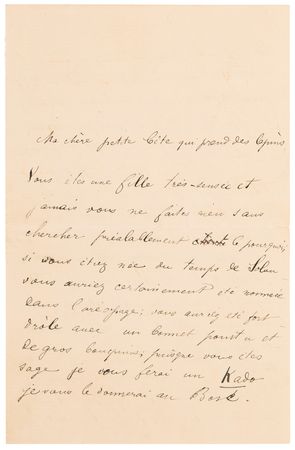 Ma chère petite Cite qui prend des
Vous êtes une fille très-sensée et
jamais vous ne faites rien sans
chercher préalablement le pourquoi,
si vous étiez née du temps de Solon
vous auriez certainement été nommée
dans l'aréopage; vous auriez été fort
drôle avec un bonnet pointu et
de gros bouquins; puisque vous êtes
sage je vous ferai un Kado
je vous le donnerai au